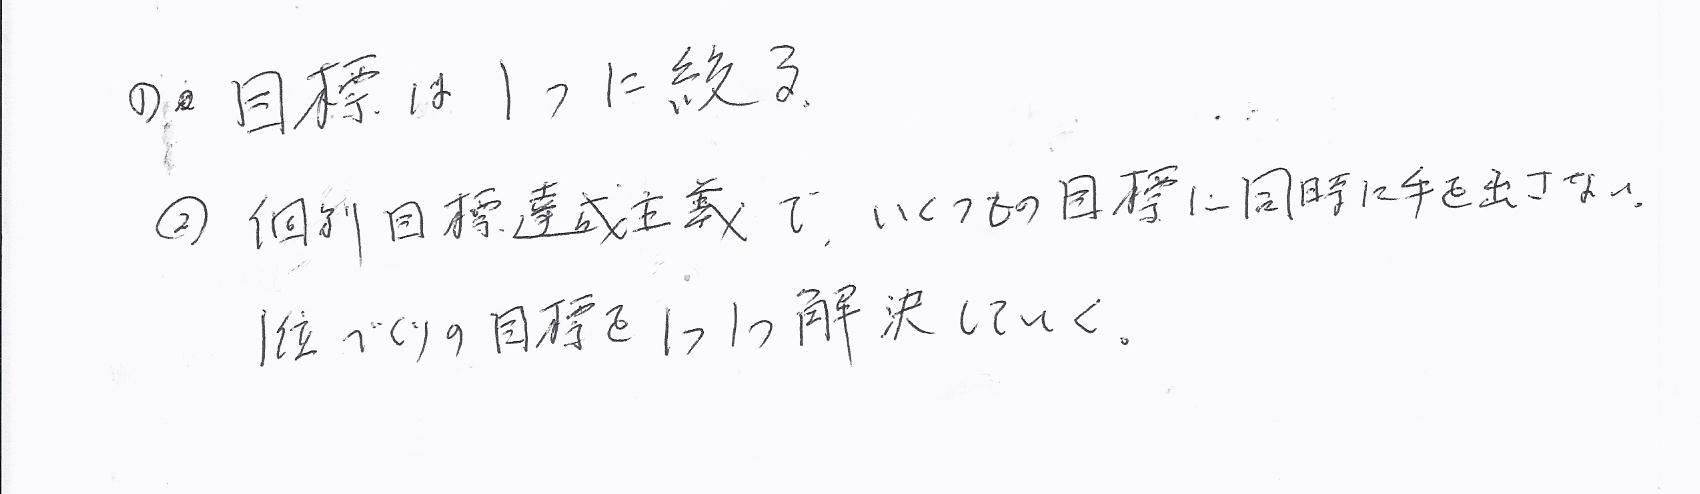 ① 目標は1つに絞る。
② 個別目標達成主義で、いくつもの目標に同時に手を出さない。
1位づくりの目標を1つ1つ解決していく。